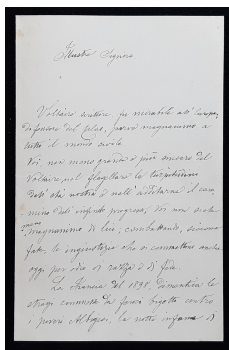 Illustre Signore
Voltaire scrittore fu mirabile ed
difensore del Calas, parve magnanimo a
tutto il mondo civile
Voi non meno grande e più sincero del
Voltaire nel flagellare le turpitudini
dell' età nostra e nell' additarne il cam-
mino degli infiniti progressi, Voi non siete
meno magnanimo di lui, combattendo, siccome
fate, le ingiustizie che si commettono anche
oggi per odio di razza e di fede.
La Francia del 1898, dimentica le
stragi commesse da bigotti contro
i poveri Albigesi, la notte infame di